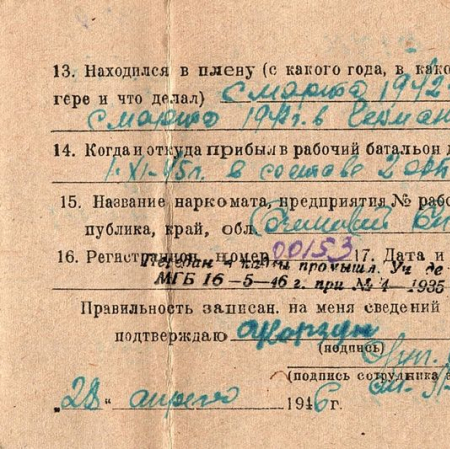 13. Находился в плену (с какого года, в како
гере и что делал) с марта 1942
с марта 1942 г. в Герман
14. Когда и откуда прибыл в рабочий батальон д
1-XI-45г. в составе 2
15. Название наркомата, предприятия № рабо
публика, край, обл.
16. Регистрацион. номер 00153 17. Дата и
Передан промышл. Уч де
МГБ 16-5-46 г. при № 4-1935
Правильность записан. на меня сведений
подтверждаю Корзун
(подпись)
(подпись сотрудника
„28" апреля 1946 г.